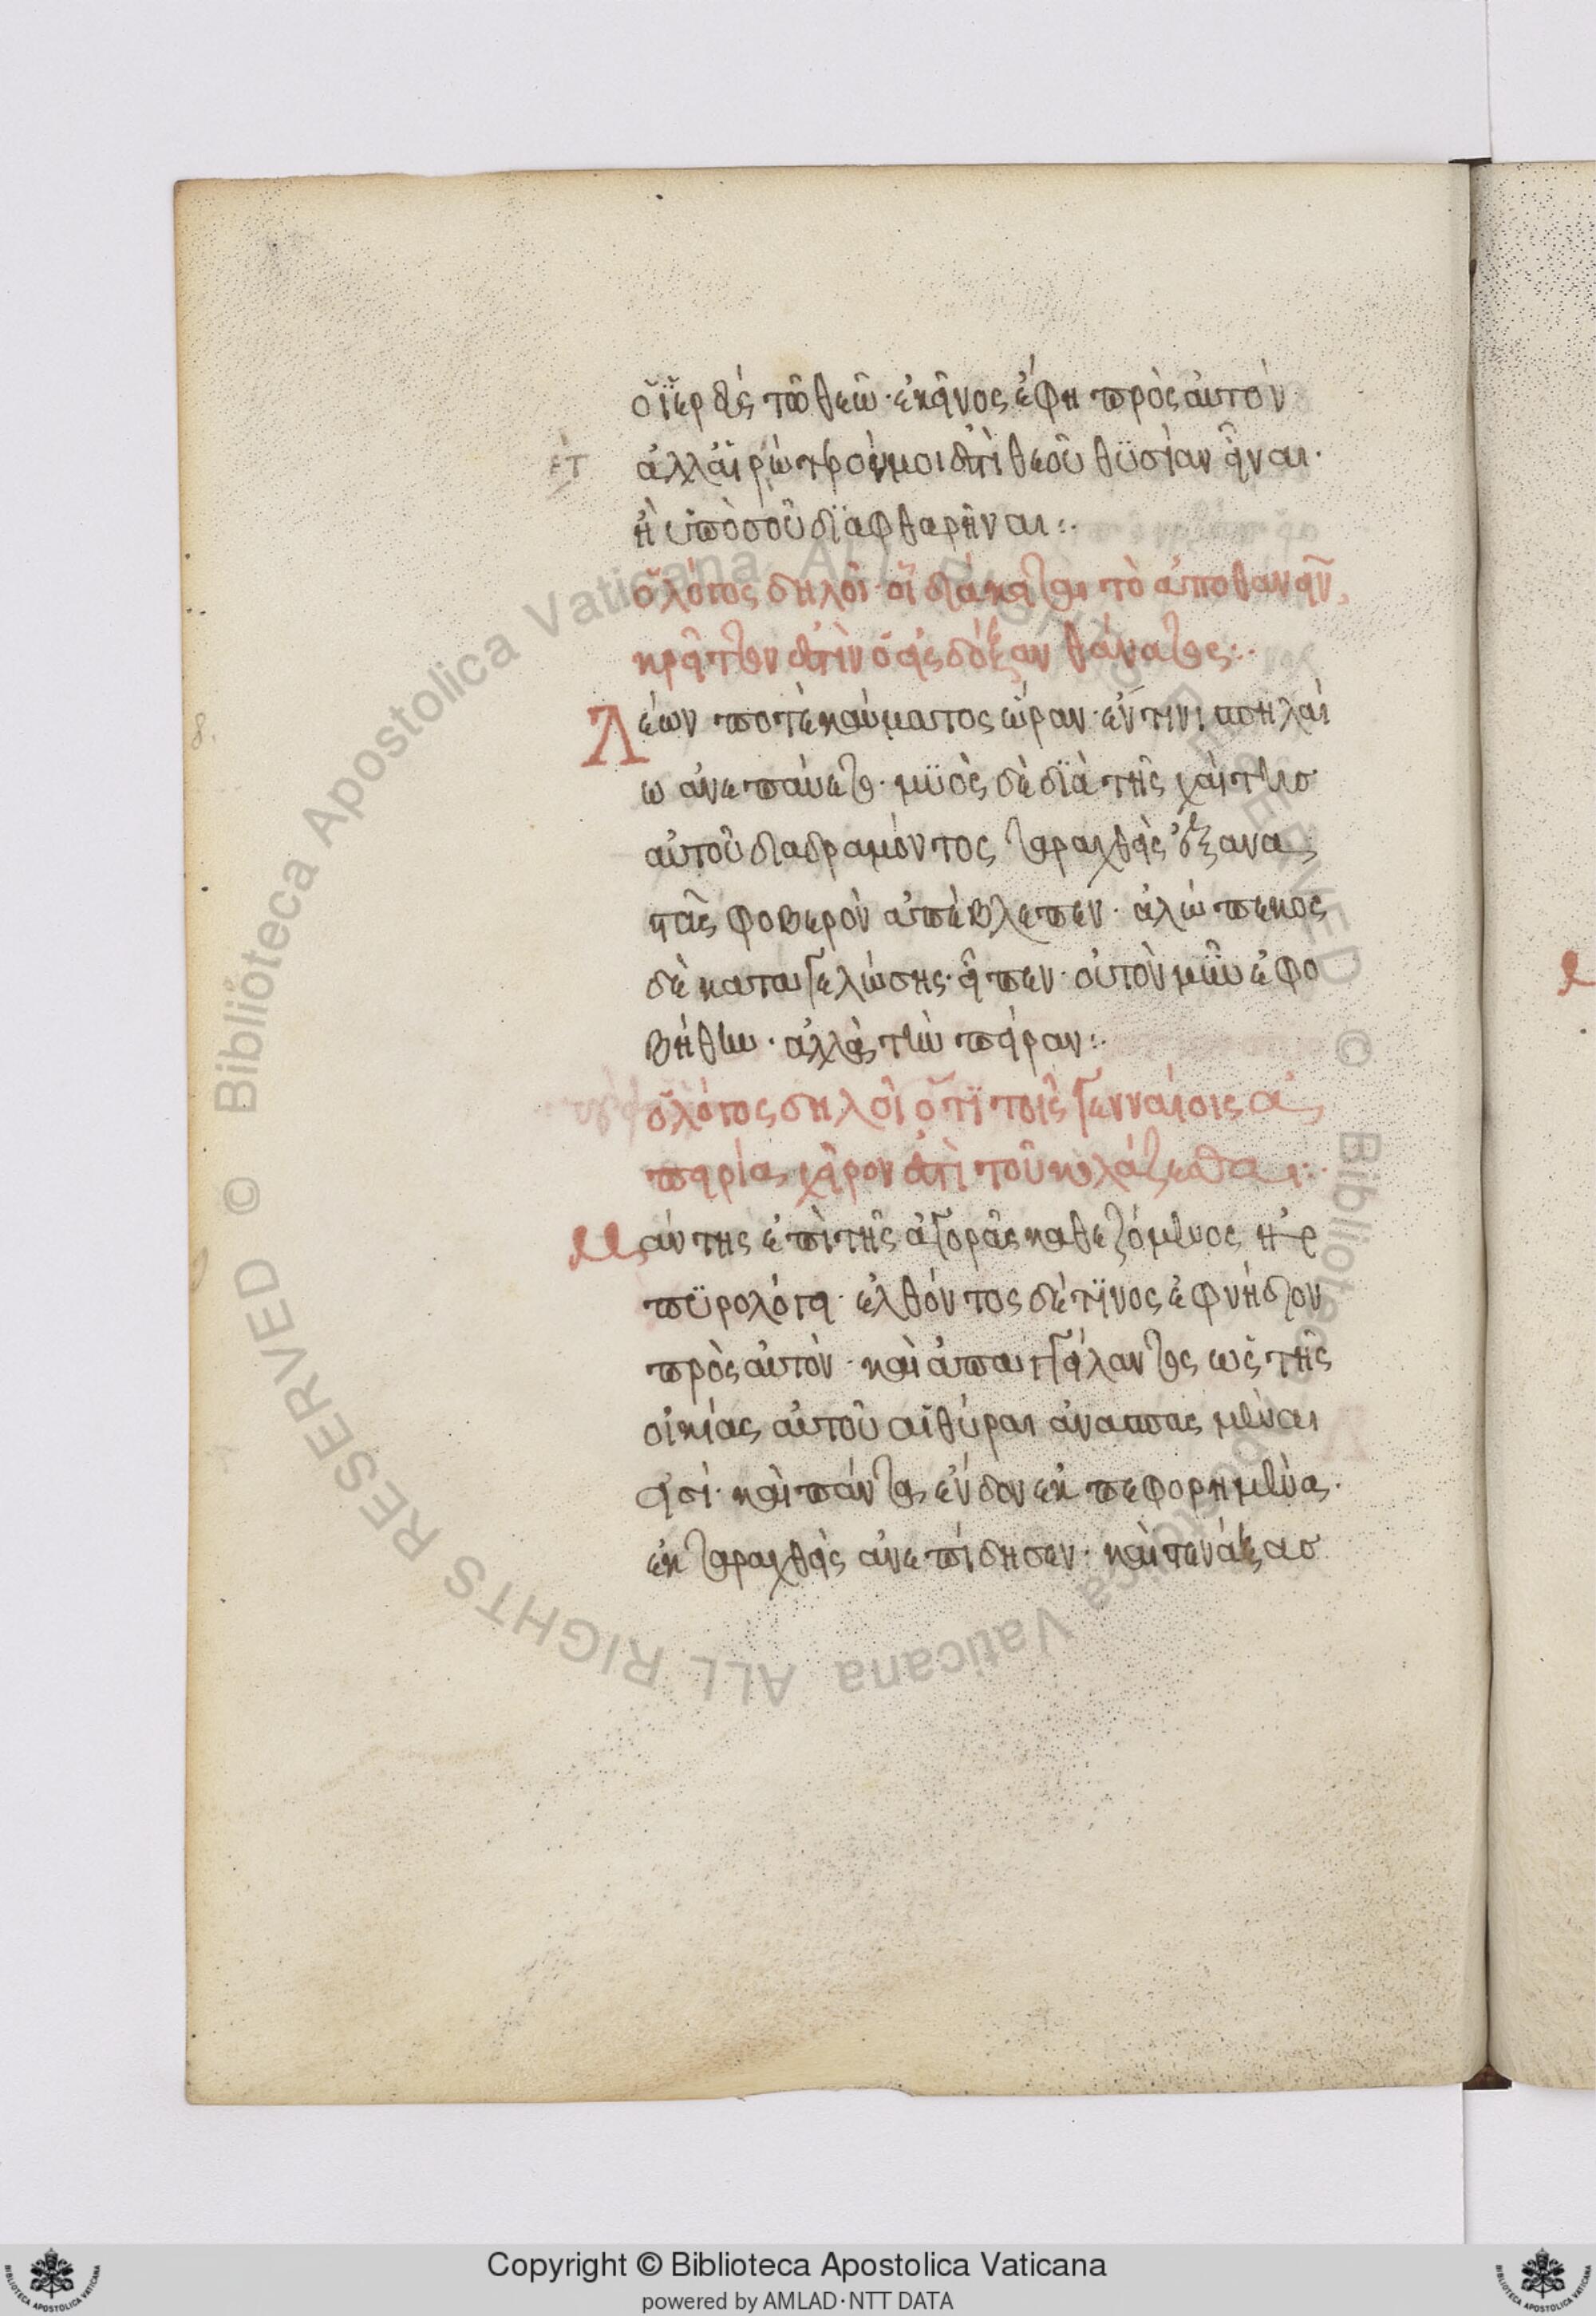 ὁ ἱερεὺς τῶ θεῶ· ἐκεῖνος ἔφη πρὸς αὐτὸν
ἀλλ' αἱρώτερόν μοι ἐστὶ θεοῦ θϋσίαν εἶναι·
ἢ ὑπὸ σοῦ δϊαφθαρῆναι :·
ὁ λόγος δηλοῖ· οἷ διάκειται τὸ ἀποθανεῖν,
κρεῖττον ἐστὶν ὁ εἰς δόξαν θάνατος :·
Λέων ποτὲ καύματος ὥραν· ἔν τινι σπηλαί
ω ἀνεπαύετο· μϋὸς δὲ δϊὰ τῆς χαίτησ
αὐτοῦ διαδραμόντος ταραχθεὶς ἐξανα
στὰς φοβερὸν ἀπέβλεπεν· ἀλώπεκος
δὲ καταγελώσης· εἶπεν· οὐ τὸν μῦν ἐφο
βήθην· ἀλλὰ τὴν πεῖραν :·
ὁ λόγος δηλοῖ ὅτϊ τοῖς γενναίοις ἀ
πειρία χεῖρον ἐστὶ τοῦ κολάζεσθαι :·
Μάντης ἐπὶ τῆς ἀγορᾶς καθεζόμενος ἠρ
γϋρολόγει· ἐλθόντος δέ τϊνος ἐφνήδιον
πρὸς αὐτὸν· καὶ ἀπαγγείλαντος ὡς τῆς
οἰκίας αὐτοῦ αἱ θύραι ἀνασπασμέναι
εἰσί· καὶ πάντα ἔνδον ἐκπεφορημένα·
ἐκταραχθεὶς ἀνεπίδησεν· καὶ στενάξασ
8.
Copyright © Biblioteca Apostolica Vaticana
powered by AMLAD·NTT DATA
© Biblioteca Apostolica Vaticana ALL RIGHTS RESERVED
© Biblioteca Apostolica Vaticana ALL RIGHTS RESERVED